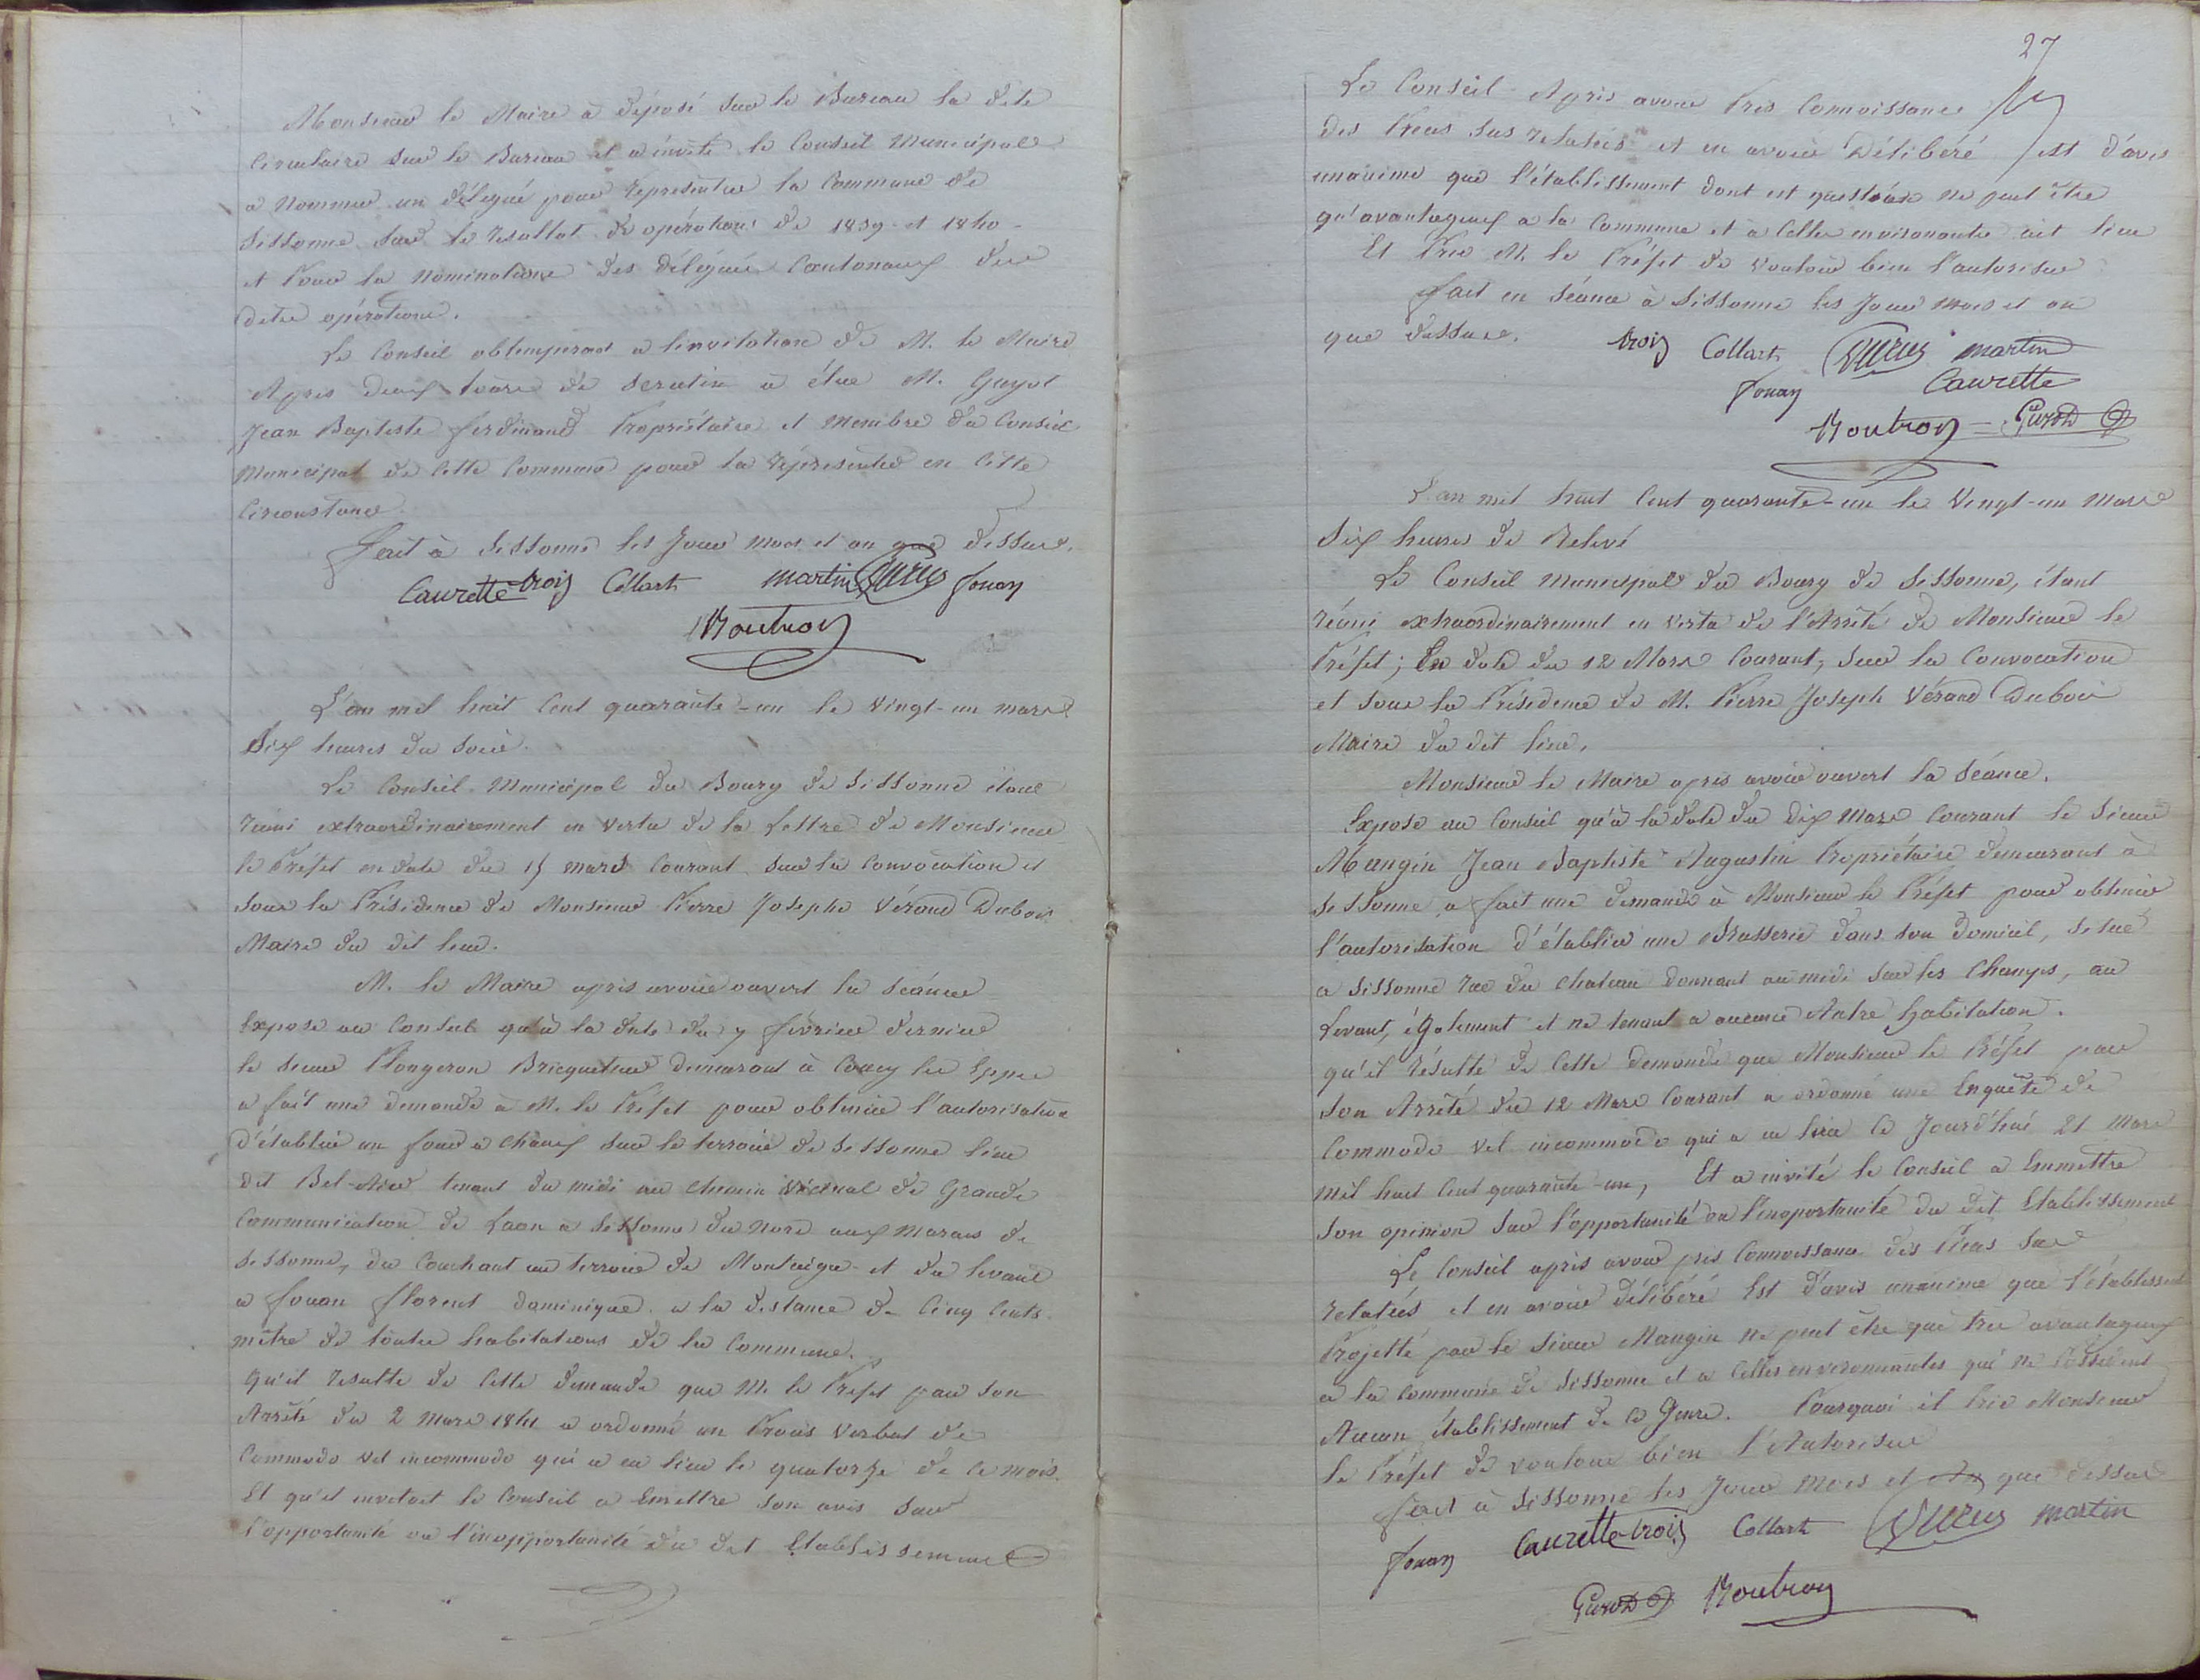 Monsieur le Maire a déposé sur le Bureau la dite
Circulaire sur le Bureau et a invité le Conseil Municipal
a nommer un délégué pour représenter la Commune de
Sissonne sur le résultat d'opérations de 1839 et 1840 -
et pour la nomination des délégués Cantonaux due
dite opérations.
Le Conseil obtemperant a l'invitation de M. le Maire
Apres deux tours de scrutin a élu M. Guyot
Jean Baptiste ferdinand Propriétaire et Membre du Conseil
Municipal de Cette Commune pour la représenter en Cette
Circonstance.
fait à Sissonne les Jour mois et an que dessus.
Caurette trois Collart martin fouan
Moutroy
L'an mil huit Cent quarante-un le Vingt-un mars
Six heures du soir.
Le Conseil Municipal du Bourg de Sissonne étant
réuni extraordinairement en vertu de la Lettre de Monsieur
le Préfet en date du 15 mars Courant sur la Convocation et
sous la Présidence de Monsieur Pierre Joseph Vérand Dubois
Maire du dit lieu.
M. le Maire apres avoir ouvert la séance
Expose au Conseil qu'à la date du 7 février dernier
le Sieur Plongeron Bricquetier demeurant à Coucy les Eppes
a fait une demande à M. le Préfet pour obtenir l'autorisation
d'établir un four a chaux sur le terroir de Sissonne lieu
dit Bel-Air tenant du midi au chemin vicinal de Grande
Communication de Laon a Sissonne du Nord aux Marais de
Sissonne, du Couchant au terroir de Montaigu et du levant
a fouan florent dominique a la distance de Cinq Cents
mètre de toutes habitations de la Commune.
Qu'il résulte de Cette demande que M. le Prefet par son
Arrêté du 2 Mars 1841 a ordonné un Procés Verbal de
Commodo vel incommodo qui a eu lieu le quatorze de Ce mois.
Et qu'il invitait le Conseil a Emettre son avis sur
l'opportunité ou l'inopportunité du dit Etablissement
27
Le Conseil Apris avoir Pris Connoissance
des Pieces sus relatés et en avoir Délibéré est d'avis
unanime que l'établissement dont est question ne peut être
qu'avantageux a la Commune et à Celles environnantes ait lieu
Et Prie M. le Préfet de vouloir bien l'autoriser
fait en séance à Sissonne les Jour mois et an
que dessus. trois Collart martin
fouan Caurette
Moutroy
L'an mil huit Cent quarante-un le Vingt-un Mars
Six heures de Relevé
Le Conseil municipal du Bourg de Sissonne, étant
réuni extraordinairement en vertu de l'Arrêté de Monsieur le
Préfet; En date du 12 Mars Courant, sur la Convocation
et sous la Présidence de M. Pierre Joseph Vérand Dubois
Maire du dit lieu.
Monsieur le Maire apris avoir ouvert la séance.
Expose au Conseil qu'à la date du Dix Mars Courant le Sieur
Mangin Jean Baptiste Augustin Propriétaire demeurant à
Sissonne a fait une demande à Monsieur le Préfet pour obtenir
l'autorisation d'établir une Brasserie dans son domicil, situé
a Sissonne rue du chateau donnant au midi sur les Champs, au
Levant, également et ne tenant a aucune Autre habitation.
qu'il résulte de Cette demande que Monsieur le Préfet par
son Arrêté du 12 Mars Courant a ordonné une Enquête de
Commodo vel incommodo qui a eu lieu Ce Jourd'hui 21 Mars
mil huit Cent quarante-un, Et a invité le Conseil a Emmettre
son opinion sur l'opportunité ou l'inoportunité du dit Etablissement
Le Conseil apris avoir pris Connoissance des Pieces sus
relatés et en avoir délibéré Est d'avis unanime que l'établissement
Projetté par le Sieur Mangin ne peut être que très avantageux
a la Commune de Sissonne et a Celles environnantes qui ne Possèdent
Aucun établissement de Ce Genre. Pourquoi il Prie Monsieur
le Préfet de vouloir bien l'Autoriser
fait à Sissonne les Jour Mois et an que dessus
fouan Caurette trois Collart martin
Moutroy